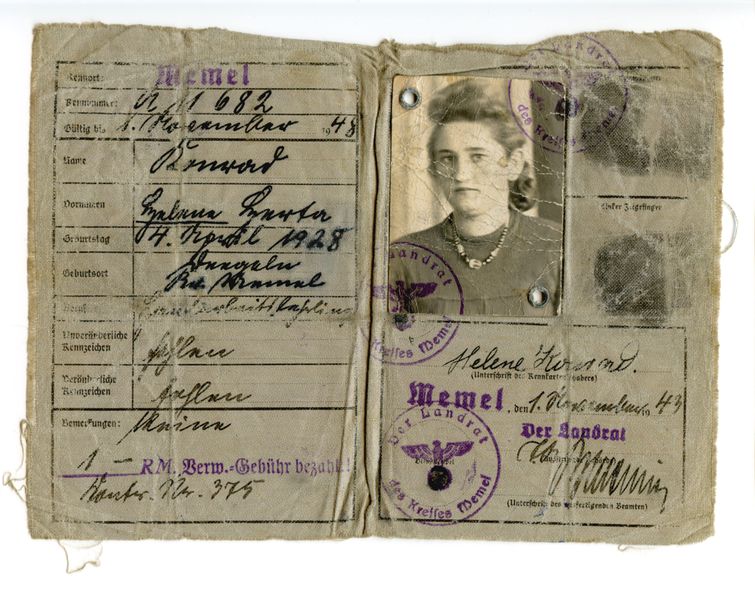 Kennort: Memel
Kennummer: A 11682
Gültig bis 1. November 1948
Name Konrad
Vornamen Helene Herta
Geburtstag 4. April 1928
Geburtsort
Kr. Memel
Beruf
Unveränderliche Kennzeichen fehlen
Veränderliche Kennzeichen fehlen
Bemerkungen: Keine
1 — R.M. Verw.-Gebühr bezahlt!
Kontr. Nr. 375
Der Landrat
des Kreises Memel
Linker Zeigefinger
Landrat
Kreises Memel
Helene Konrad.
(Unterschrift des Kennkarteninhabers)
Memel, den 1. November 1943
Der Landrat
Der Landrat
des Kreises Memel
(Unterschrift des ausfertigenden Beamten)